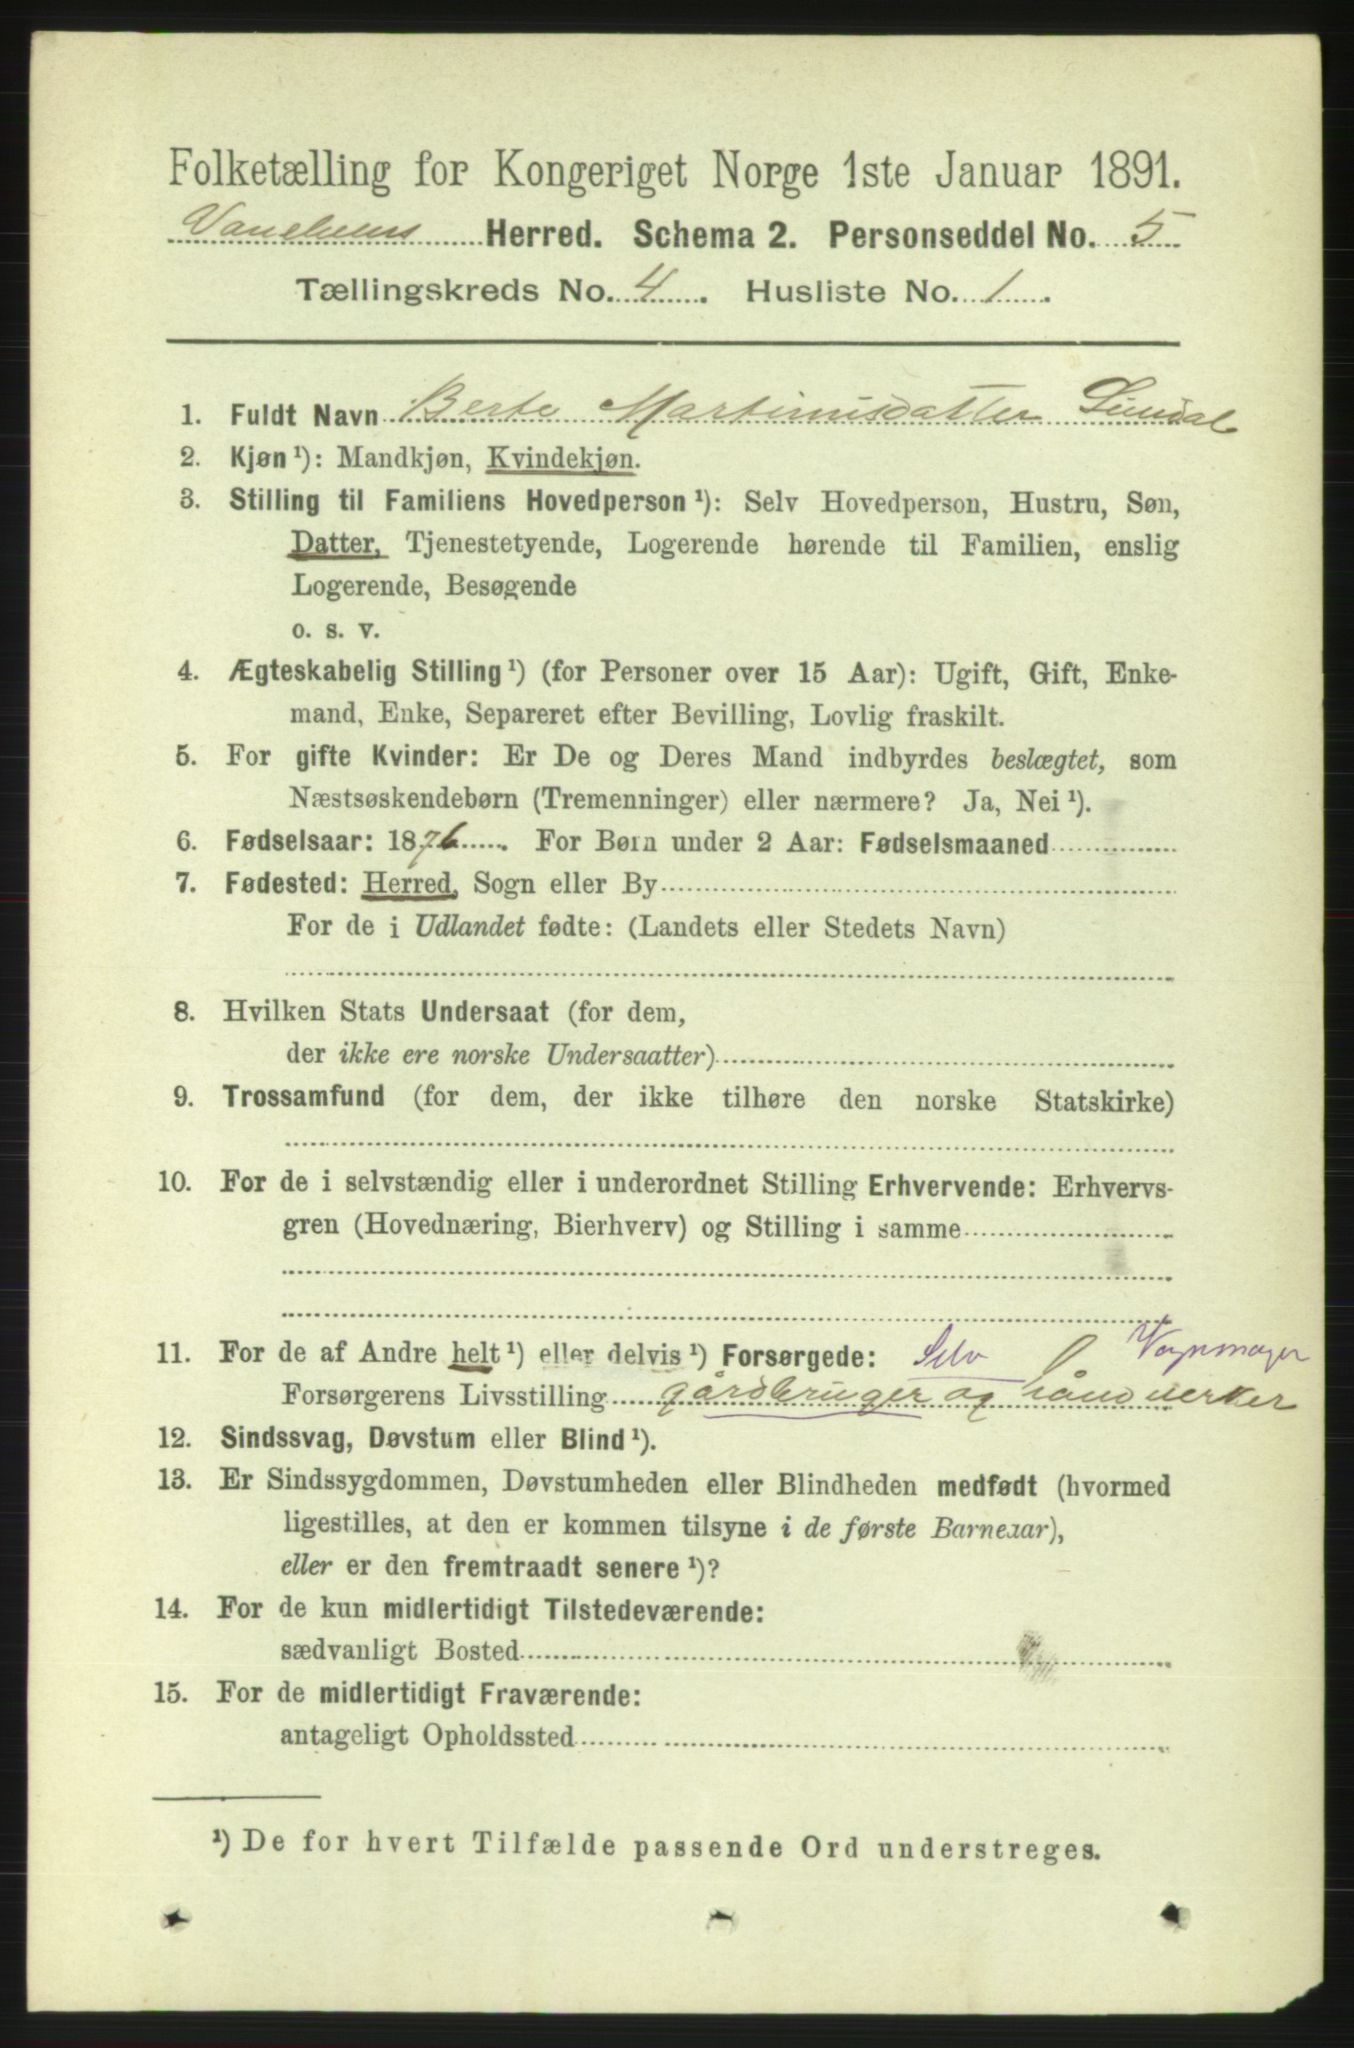 Folketælling for Kongeriget Norge 1ste Januar 1891.
Vanelvens Herred. Schema 2. Personseddel No. 5
Tællingskreds No. 4. Husliste No. 1.
1. Fuldt Navn Berte Martinusdatter Sundal
2. Kjøn¹): Mandkjøn, Kvindekjøn.
3. Stilling til Familiens Hovedperson¹): Selv Hovedperson, Hustru, Søn,
Datter, Tjenestetyende, Logerende hørende til Familien, enslig
Logerende, Besøgende
o. s. v.
4. Ægteskabelig Stilling¹) (for Personer over 15 Aar): Ugift, Gift, Enke-
mand, Enke, Separeret efter Bevilling, Lovlig fraskilt.
5. For gifte Kvinder: Er De og Deres Mand indbyrdes beslægtet, som
Næstsøskendebørn (Tremenninger) eller nærmere? Ja, Nei¹).
6. Fødselsaar: 1876. For Børn under 2 Aar: Fødselsmaaned
7. Fødested: Herred, Sogn eller By
For de i Udlandet fødte: (Landets eller Stedets Navn)
8. Hvilken Stats Undersaat (for dem,
der ikke ere norske Undersaatter)
9. Trossamfund (for dem, der ikke tilhøre den norske Statskirke)
10. For de i selvstændig eller i underordnet Stilling Erhvervende: Erhvervs-
gren (Hovednæring, Bierhverv) og Stilling i samme
11. For de af Andre helt¹) eller delvis¹) Forsørgede: Selv Vognmager
Forsørgerens Livsstilling gårdbruger og håndverker
12. Sindssvag, Døvstum eller Blind¹).
13. Er Sindssygdommen, Døvstumheden eller Blindheden medfødt (hvormed
ligestilles, at den er kommen tilsyne i de første Barneaar),
eller er den fremtraadt senere¹)?
14. For de kun midlertidigt Tilstedeværende:
sædvanligt Bosted
15. For de midlertidigt Fraværende:
antageligt Opholdssted
¹) De for hvert Tilfælde passende Ord understreges.